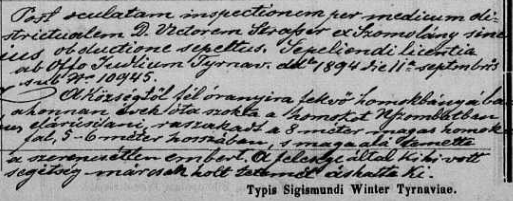 Post oculatam inspectionem per medicum di-
strictualem D. Victorem Strasser ex Szomolány sine
ius obductione sepultus. Sepeliendi licentia
ab Offo Iudlium Tyrnav. ddto 1894 die 11a septembris
sub No 10945.
A községtől fél óranyira fekvő homokbányában
ahonnan évek óta szokta a homokot
rászakadt a 8 méter magas homok
fal, 5-6 méter hosszában, s maga alá temette
a szerencsétlen embert. A felesége által kihivott
segitség már csak holt tetemét áshatta ki.
Typis Sigismundi Winter Tyrnaviae.